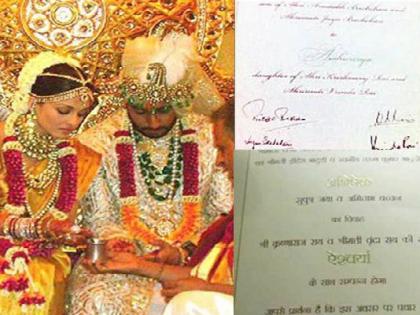 son of Shri Amitabh Bachchan and
Shrimati Jaya Bachchan
to
Aishwarya
daughter of Shri Krishnaraj Rai and
Shrimati Vrinda Rai
अभिषेक
सुपुत्र जया व अमिताभ बच्चन
का विवाह
श्री कृष्णराज राय व श्रीमती वृंदा राय की
ऐश्वर्या
के साथ सम्पन्न होगा
आपसे प्रार्थना है कि इस अवसर पर पधार